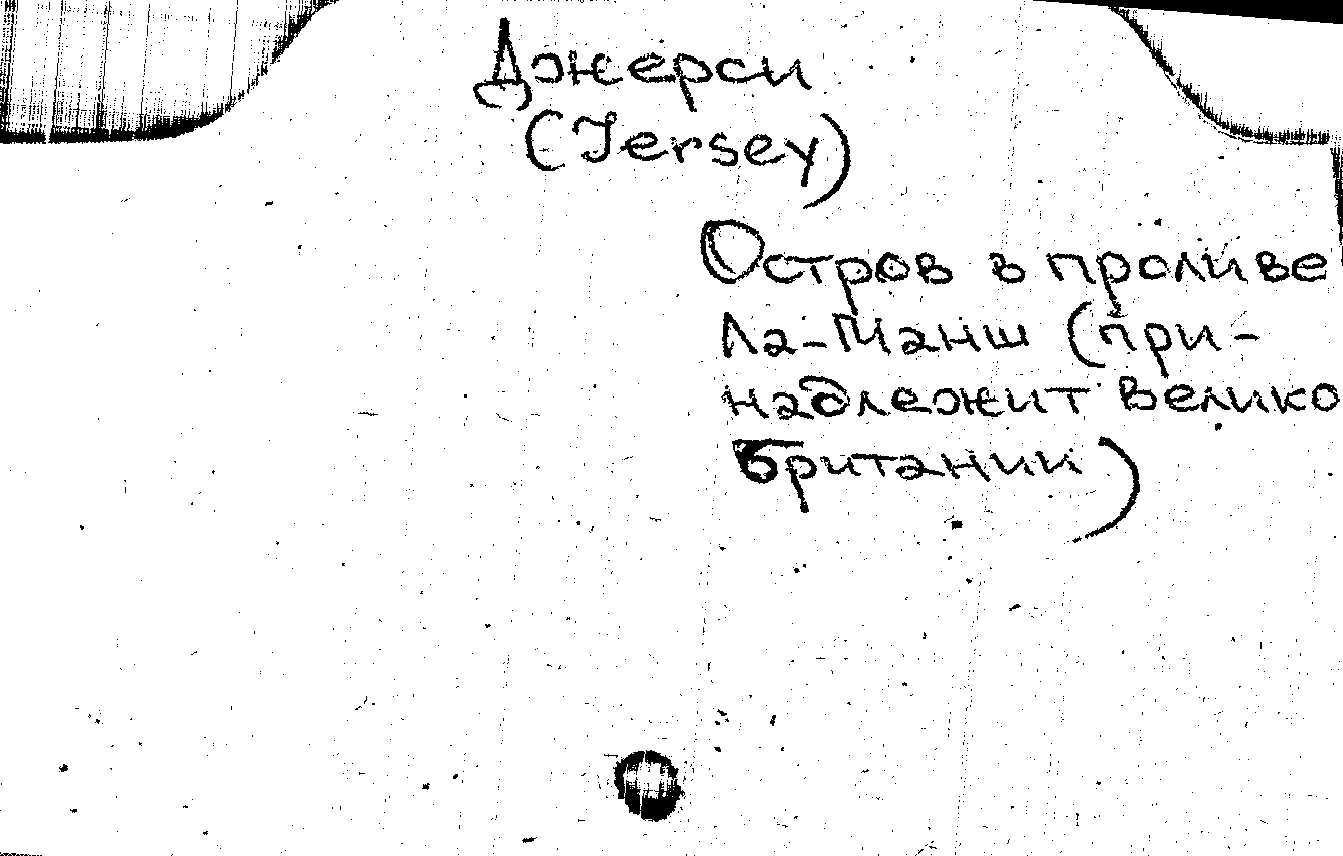 Джерси
(Jersey)
Остров в проливе
Ла-Манш (при-
надлежит Велико
британии)